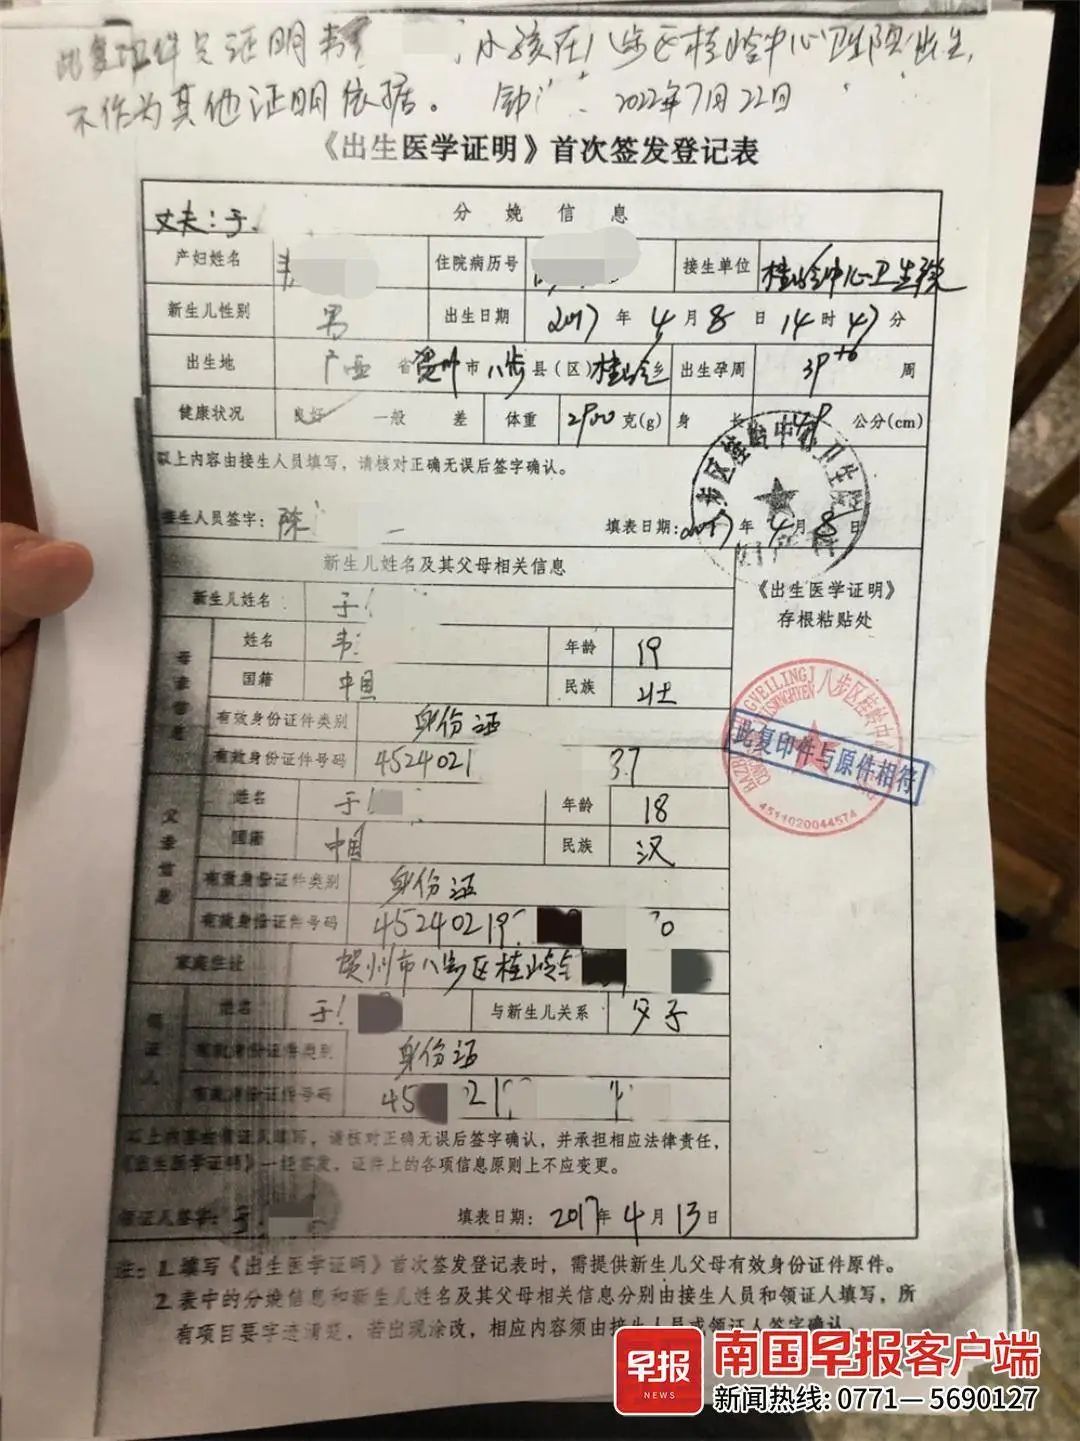 此复印件只证明韦 小孩在八步区桂岭中心卫生院出生,
不作为其他证明依据。 2022年7月22日
《出生医学证明》首次签发登记表
丈夫:于
分娩信息
产妇姓名 韦 住院病历号 接生单位 桂岭中心卫生院
新生儿性别 男 出生日期 2017年4月8日14时47分
出生地 广西省贺州市八步县(区)桂岭乡 出生孕周 39+6周
健康状况 良好✓ 一般 差 体重 2900克(g) 身长 49公分(cm)
以上内容由接生人员填写,请核对正确无误后签字确认。
接生人员签字:陈 填表日期:2017年4月8日
新生儿姓名及其父母相关信息
《出生医学证明》
存根粘贴处
新生儿姓名 于
母亲信息
姓名 韦 年龄 19
国籍 中国 民族 壮
有效身份证件类别 身份证
有效身份证件号码 4524021 37
此复印件与原件相符
八步区桂岭中
4511020044574
父亲信息
姓名 于 年龄 18
国籍 中国 民族 汉
有效身份证件类别 身份证
有效身份证件号码 45240219 0
家庭住址 贺州市八步区桂岭
领证人
姓名 于 与新生儿关系 父子
有效身份证件类别 身份证
有效身份证件号码 45 21
以上内容由领证人填写,请核对正确无误后签字确认,并承担相应法律责任,
《出生医学证明》一经签发,证件上的各项信息原则上不应变更。
领证人签字:于 填表日期:2017年4月13日
注:1.填写《出生医学证明》首次签发登记表时,需提供新生儿父母有效身份证件原件。
2.表中的分娩信息和新生儿姓名及其父母相关信息分别由接生人员和领证人填写,所
有项目要字迹清楚,若出现涂改,相应内容须由接生人员或领证人签字确认。
早报
NEWS
南国早报客户端
新闻热线:0771—5690127